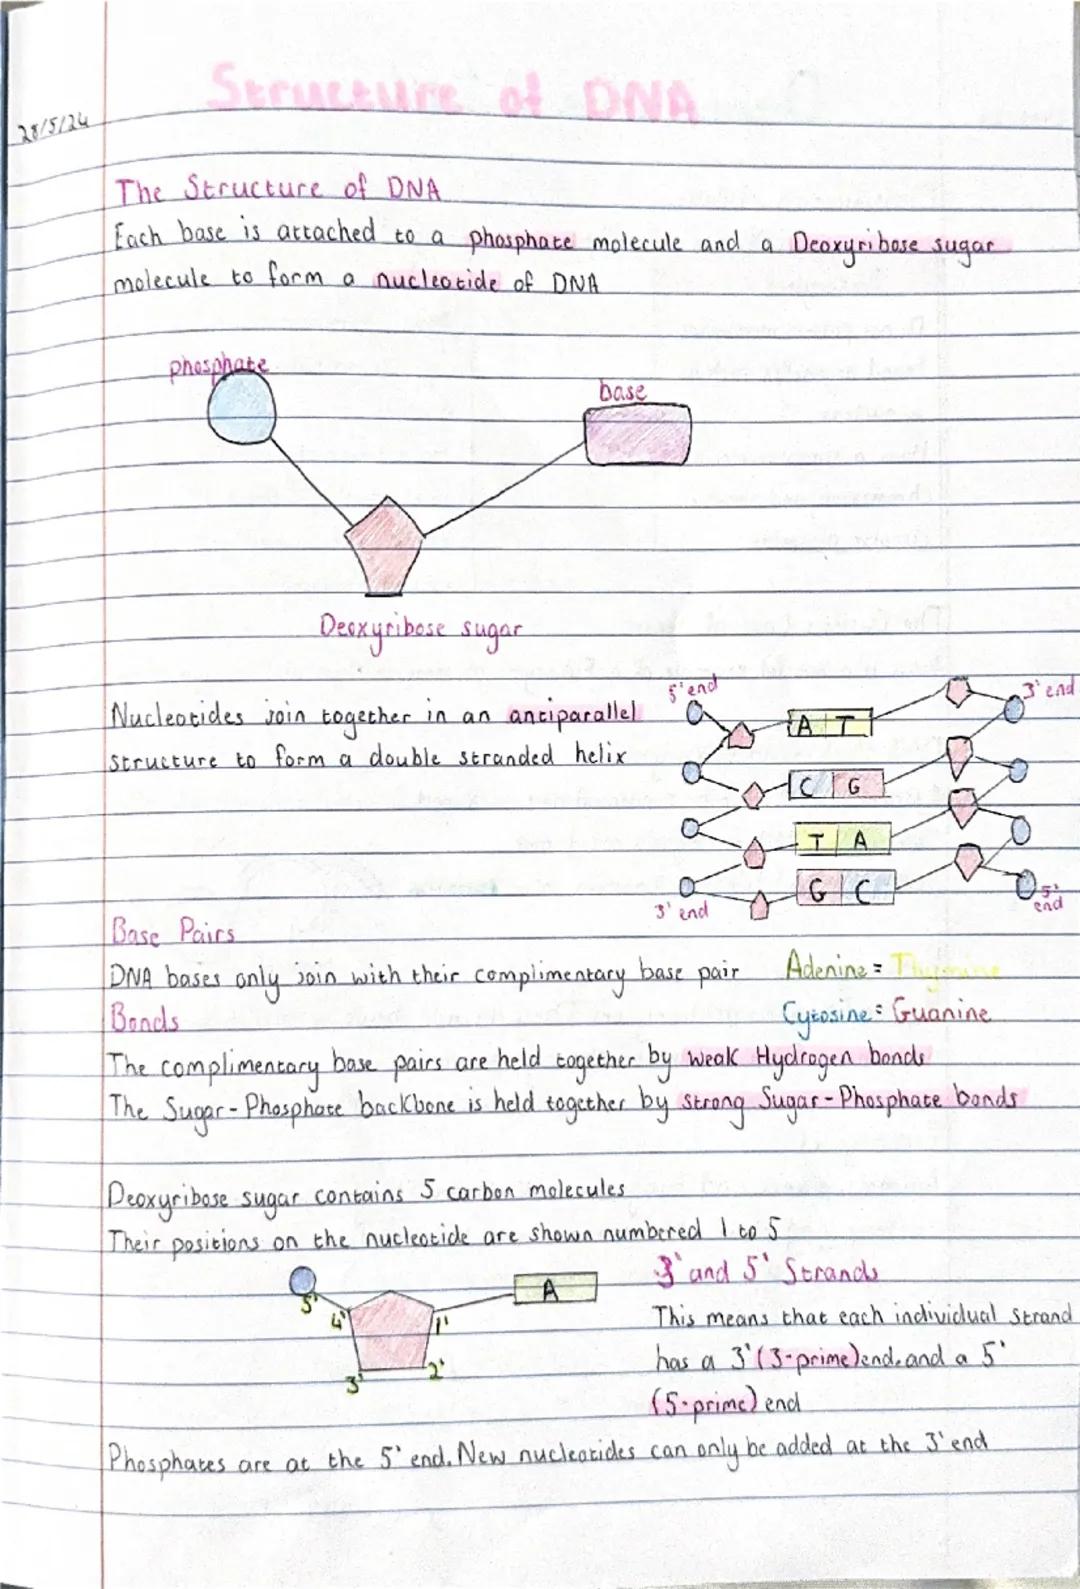 Structure of DNA
28/5/24
The Structure of DNA
Each base is attached to a phosphate molecule and a Deoxyribose sugar
molecule to form a nucleotide of DNA
phosphate
base
Deoxyribose sugar
5' end
3' end
Nucleotides join together in an antiparallel
structure to form a double stranded helix
A T
C G
T A
G C
3' end
5' end
Base Pairs
DNA bases only join with their complimentary base pair
Adenine = Thymine
Bonds
Cytosine = Guanine
The complimentary base pairs are held together by weak Hydrogen bonds
The Sugar-Phosphate backbone is held together by strong Sugar-Phosphate bonds
Deoxyribose sugar contains 5 carbon molecules
Their positions on the nucleotide are shown numbered 1 to 5
5'
4'
1'
3'
2'
A
3' and 5' Strands
This means that each individual strand
has a 3' (3-prime) end. and a 5'
(5-prime) end
Phosphates are at the 5' end. New nucleotides can only be added at the 3' end